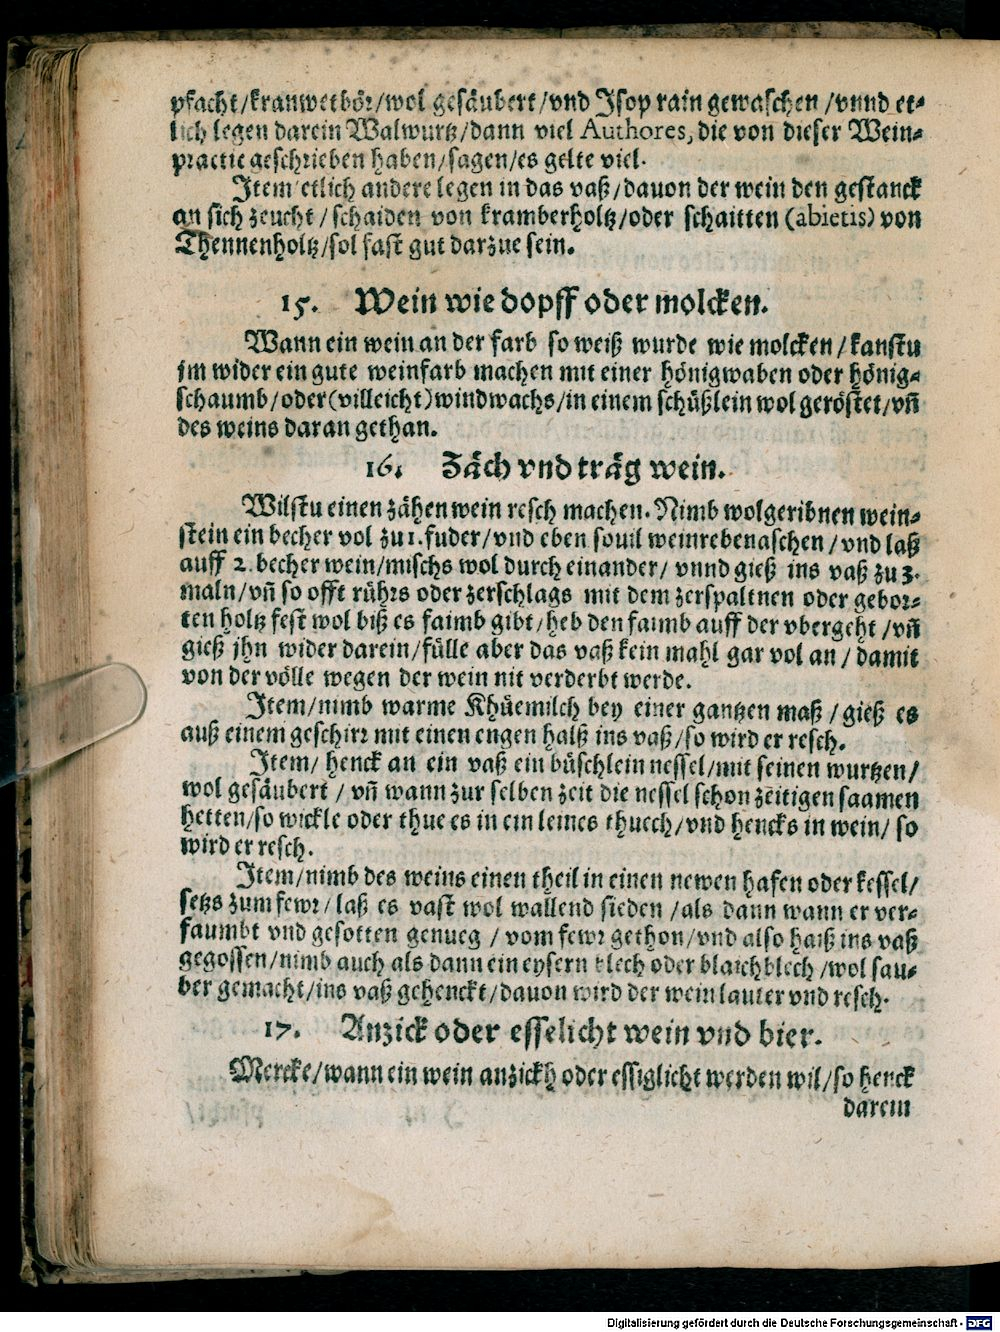 pfacht/kranwetbör/wol gesäubert/vnd Isop rain gewaschen /vnnd et-
lich legen darein Walwurtz/dann viel Authores, die von dieser Wein-
practic geschrieben haben/sagen/es gelte viel.
Item etlich andere legen in das vaß/dauon der wein den gestanck
an sich zeucht /schaiden von kramberholtz/oder schaitten (abietis) von
Thennenholtz/sol fast gut darzue sein.
15. Wein wie dopff oder molcken.
Wann ein wein an der farb so weiß wurde wie molcken /kanstu
jm wider ein gute weinfarb machen mit einer hönigwaben oder hönig-
schaumb/oder(villeicht)windwachs/in einem schüßlein wol geröstet/vñ
des weins daran gethan.
16. Zäch vnd träg wein.
Wilstu einen zähen wein resch machen. Nimb wolgeribnen wein-
stein ein becher vol zu 1. fuder/vnd eben souil weinrebenaschen /vnd laß
auff 2. becher wein/mischs wol durch einander/ vnnd gieß ins vaß zu 3.
maln/vñ so offt rührs oder zerschlags mit dem zerspaltnen oder gebor-
ten holtz fest wol biß es faimb gibt/heb den faimb auff der vbergeht /vñ
gieß jhn wider darein/fülle aber das vaß kein mahl gar vol an / damit
von der völle wegen der wein nit verderbt werde.
Item/nimb warme Khüemilch bey einer gantzen maß /gieß es
auß einem geschirr mit einen engen halß ins vaß/so wird er resch.
Item/ henck an ein vaß ein büschlein nessel/mit seinen wurtzen/
wol gesäubert / vñ wann zur selben zeit die nessel schon zeitigen saamen
hetten/so wickle oder thue es in ein leines thuech/vnd hencks in wein/ so
wird er resch.
Item/nimb des weins einen theil in einen newen hafen oder kessel/
setzs zum fewr/laß es vast wol wallend sieden /als dann wann er ver-
faumbt vnd gesotten genueg /vom fewr gethon/vnd also haiß ins vaß
gegossen/nimb auch als dann ein eysern blech oder blaichblech /wol sau-
ber gemacht/ins vaß gehenckt/dauon wird der wein lauter vnd resch.
17. Anzick oder esselicht wein vnd bier.
Mercke/wann ein wein anzickh oder essiglicht werden wil/so henck
darein
Digitalisierung gefördert durch die Deutsche Forschungsgemeinschaft - DFG